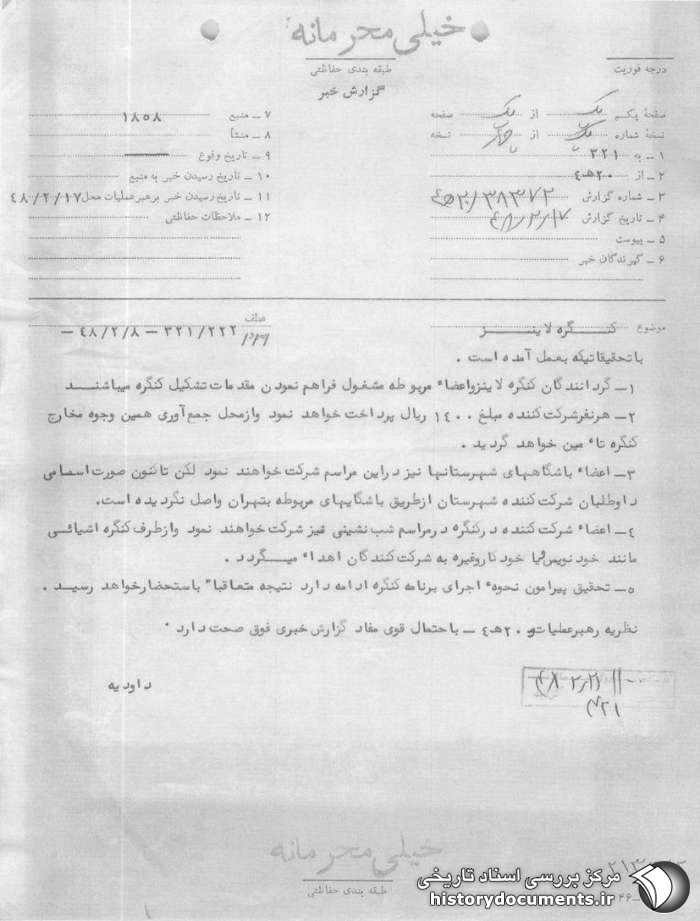 خیلی محرمانه
طبقه بندی حفاظتی
درجه فوریت
گزارش خبر
صفحهٔ یکم از یک صفحه
نسخهٔ شماره یک از نسخه
۱ـ به ۳۲۱
۲ـ از ۲۰ه‍٤
۳ـ شماره گزارش ۲۰ه‍٤/۳۸۳۷۲
۴ـ تاریخ گزارش ٤٨/۲/۱۷
۵ـ پیوست
۶ـ گیرندگان خبر
۷ـ منبع ۱۸۵۸
۸ـ منشأ
۹ـ تاریخ وقوع
۱۰ـ تاریخ رسیدن خبر به منبع
۱۱ـ تاریخ رسیدن خبر برهبر عملیات محل ٤٨/۲/۱۷
۱۲ـ ملاحظات حفاظتی
موضوع کنگره لاینز
۳۲۱/۲۲۲ – ٤٨/۲/۸ –
باتحقیقاتیکه بعمل آمده است .
۱ـ گردانندگان کنگره لاینزواعضاء مربوطه مشغول فراهم نمودن مقدمات تشکیل کنگره میباشند
۲ـ هرنفرشرکت کننده مبلغ ۱٤۰۰ ریال پرداخت خواهد نمود وازمحل جمع آوری همین وجوه مخارج
کنگره تاء مین خواهد گردید .
۳ـ اعضاء باشگاههای شهرستانها نیز دراین مراسم شرکت خواهند نمود لکن تاکنون صورت اسامی
داوطلبان شرکت کننده شهرستان ازطریق باشگاههای مربوطه بتهران واصل نگردیده است.
٤ـ اعضاء شرکت کننده درکنگره درمراسم شب نشینی نیز شرکت خواهند نمود وازطرف کنگره اشیائی
مانند خودنویس یا خودکاروغیره به شرکت کنندگان اهداء میگردد .
۵ـ تحقیق پیرامون نحوهء اجرای برنامه کنگره ادامه دارد نتیجه متعاقبا" باستحضارخواهد رسید .
نظریه رهبرعملیات ۲۰ه‍٤ – باحتمال قوی مفاد گزارش خبری فوق صحت دارد .
داودیه
خیلی محرمانه
طبقه بندی حفاظتی
مرکز بررسی اسناد تاریخی
historydocuments.ir